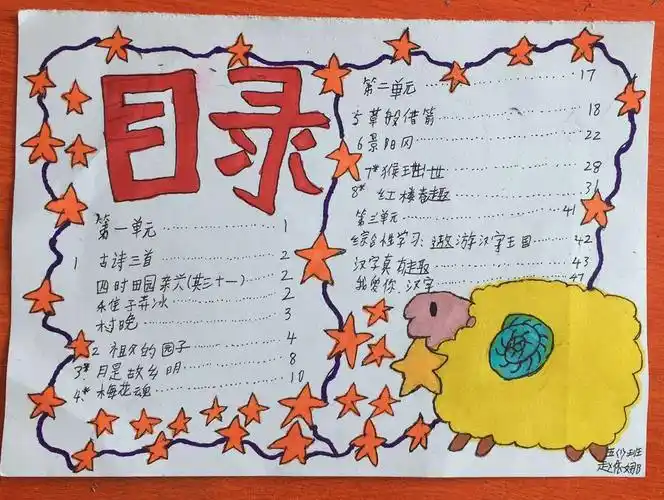 目录
第一单元 1
1 古诗三首 2
四时田园杂兴(其三十一) 2
稚子弄冰 2
村晚 3
2 祖父的园子 4
3* 月是故乡明 8
4* 梅花魂 10
第二单元 17
5 草船借箭 18
6 景阳冈 22
7* 猴王出世 28
8* 红楼春趣 31
第三单元 41
综合性学习：遨游汉字王国 42
汉字真有趣 43
我爱你，汉字 47
五(1)班